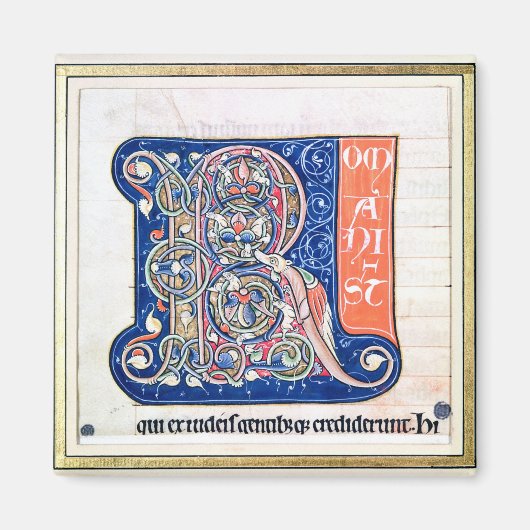 R
OM
A
NI-
ST
qui ex iudeis gentibꝫ qꝫ crediderunt. hi